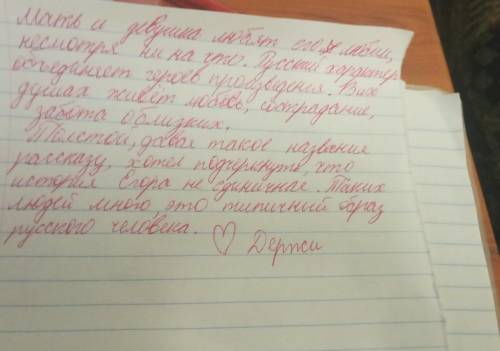 Мать и девушка любят его любым,
несмотря ни на что. Русский характер
объединяет героев произведения. В их
душах живёт любовь, сострадание,
забота о близких.
Толстой, давая такое название
рассказу, хотел подчеркнуть, что
история Егора не единичная. Таких
людей много это типичный образ
русского человека. ♡ Держи